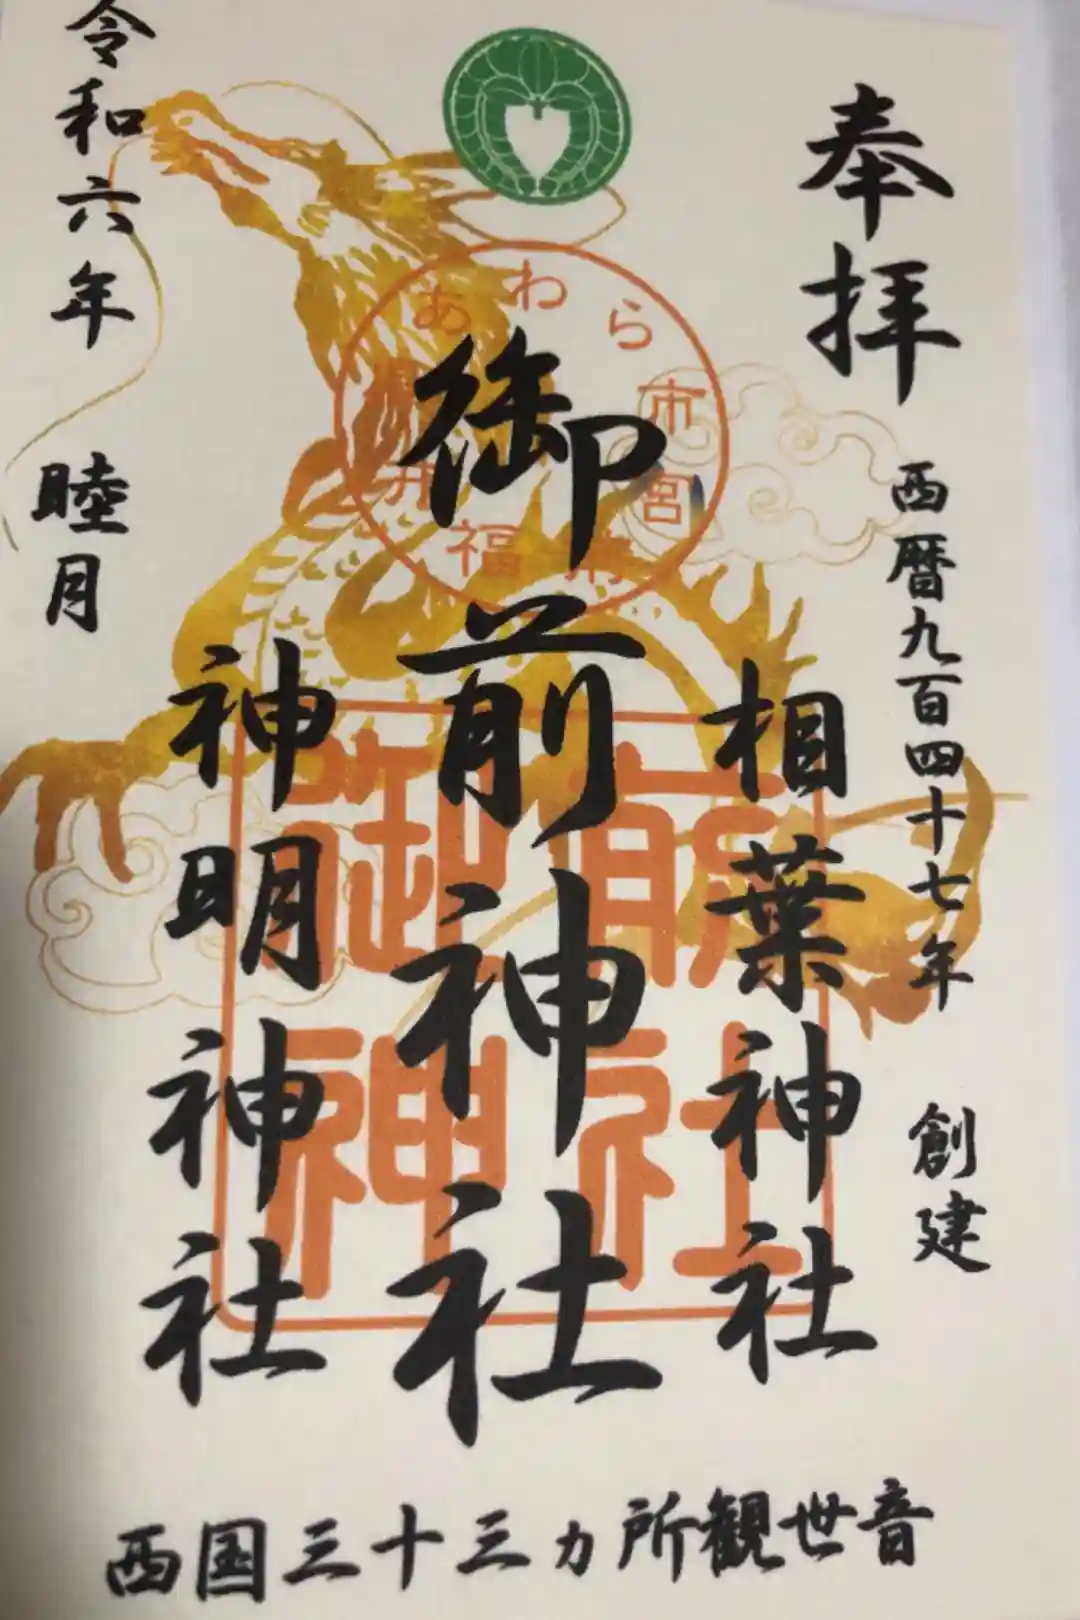 奉拝
西暦九百四十七年 創建
相葉神社
御前神社
神明神社
令和六年 睦月
西国三十三ヵ所観世音
あわら市宮前
福井県
御前神社